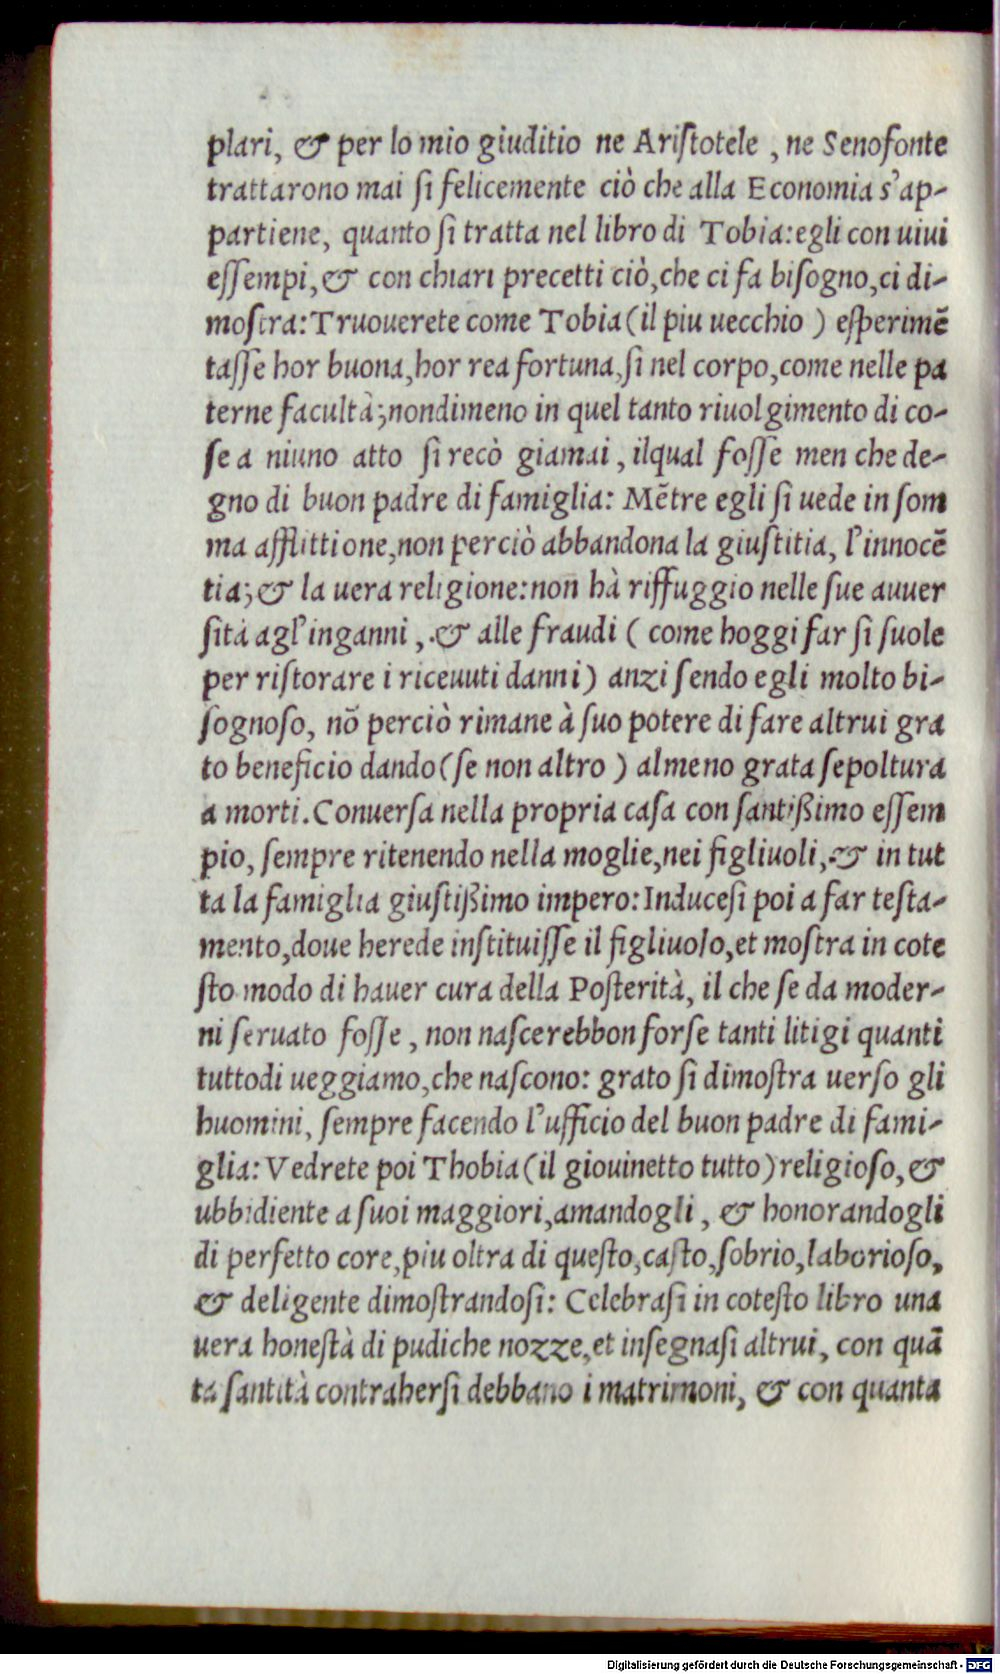 plari, & per lo mio giuditio ne Ariſtotele , ne Senofonte
trattarono mai ſi felicemente ciò che alla Economia s'ap-
partiene, quanto ſi tratta nel libro di Tobia:egli con uiui
eſſempi,& con chiari precetti ciò,che ci fa biſogno,ci di-
moſtra:Truouerete come Tobia(il piu uecchio ) eſperimẽ
taſſe hor buona,hor rea fortuna,ſi nel corpo,come nelle pa
terne facultà;nondimeno in quel tanto riuolgimento di co-
ſe a niuno atto ſi recò giamai , ilqual foſſe men che de-
gno di buon padre di famiglia: Mẽtre egli ſi uede in ſom
ma afflittione,non perciò abbandona la giuſtitia, l'innocẽ
tia;& la uera religione:non hà riffuggio nelle ſue auuer
ſità agl'inganni ,& alle fraudi ( come hoggi far ſi ſuole
per riſtorare i riceuuti danni) anzi ſendo egli molto bi-
ſognoſo, nõ perciò rimane à ſuo potere di fare altrui gra
to beneficio dando(ſe non altro ) almeno grata ſepoltura
a morti.Conuerſa nella propria caſa con ſantißimo eſſem
pio, ſempre ritenendo nella moglie,nei figliuoli,& in tut
ta la famiglia giuſtißimo impero:Induceſi poi a far teſta-
mento,doue herede inſtituiſſe il figliuolo,et moſtra in cote
ſto modo di hauer cura della Poſterità, il che ſe da moder-
ni ſeruato foſſe , non naſcerebbon forſe tanti litigi quanti
tuttodi ueggiamo,che naſcono: grato ſi dimoſtra uerſo gli
huomini, ſempre facendo l'ufficio del buon padre di fami-
glia:Vedrete poi Thobia(il giouinetto tutto)religioſo,&
ubbidiente a ſuoi maggiori,amandogli , & honorandogli
di perfetto core,piu oltra di queſto,caſto,ſobrio,laborioſo,
& deligente dimoſtrandoſi: Celebraſi in coteſto libro una
uera honeſtà di pudiche nozze,et inſegnaſi altrui, con quã
ta ſantità contraherſi debbano i matrimoni, & con quanta
Digitalisierung gefördert durch die Deutsche Forschungsgemeinschaft - DFG